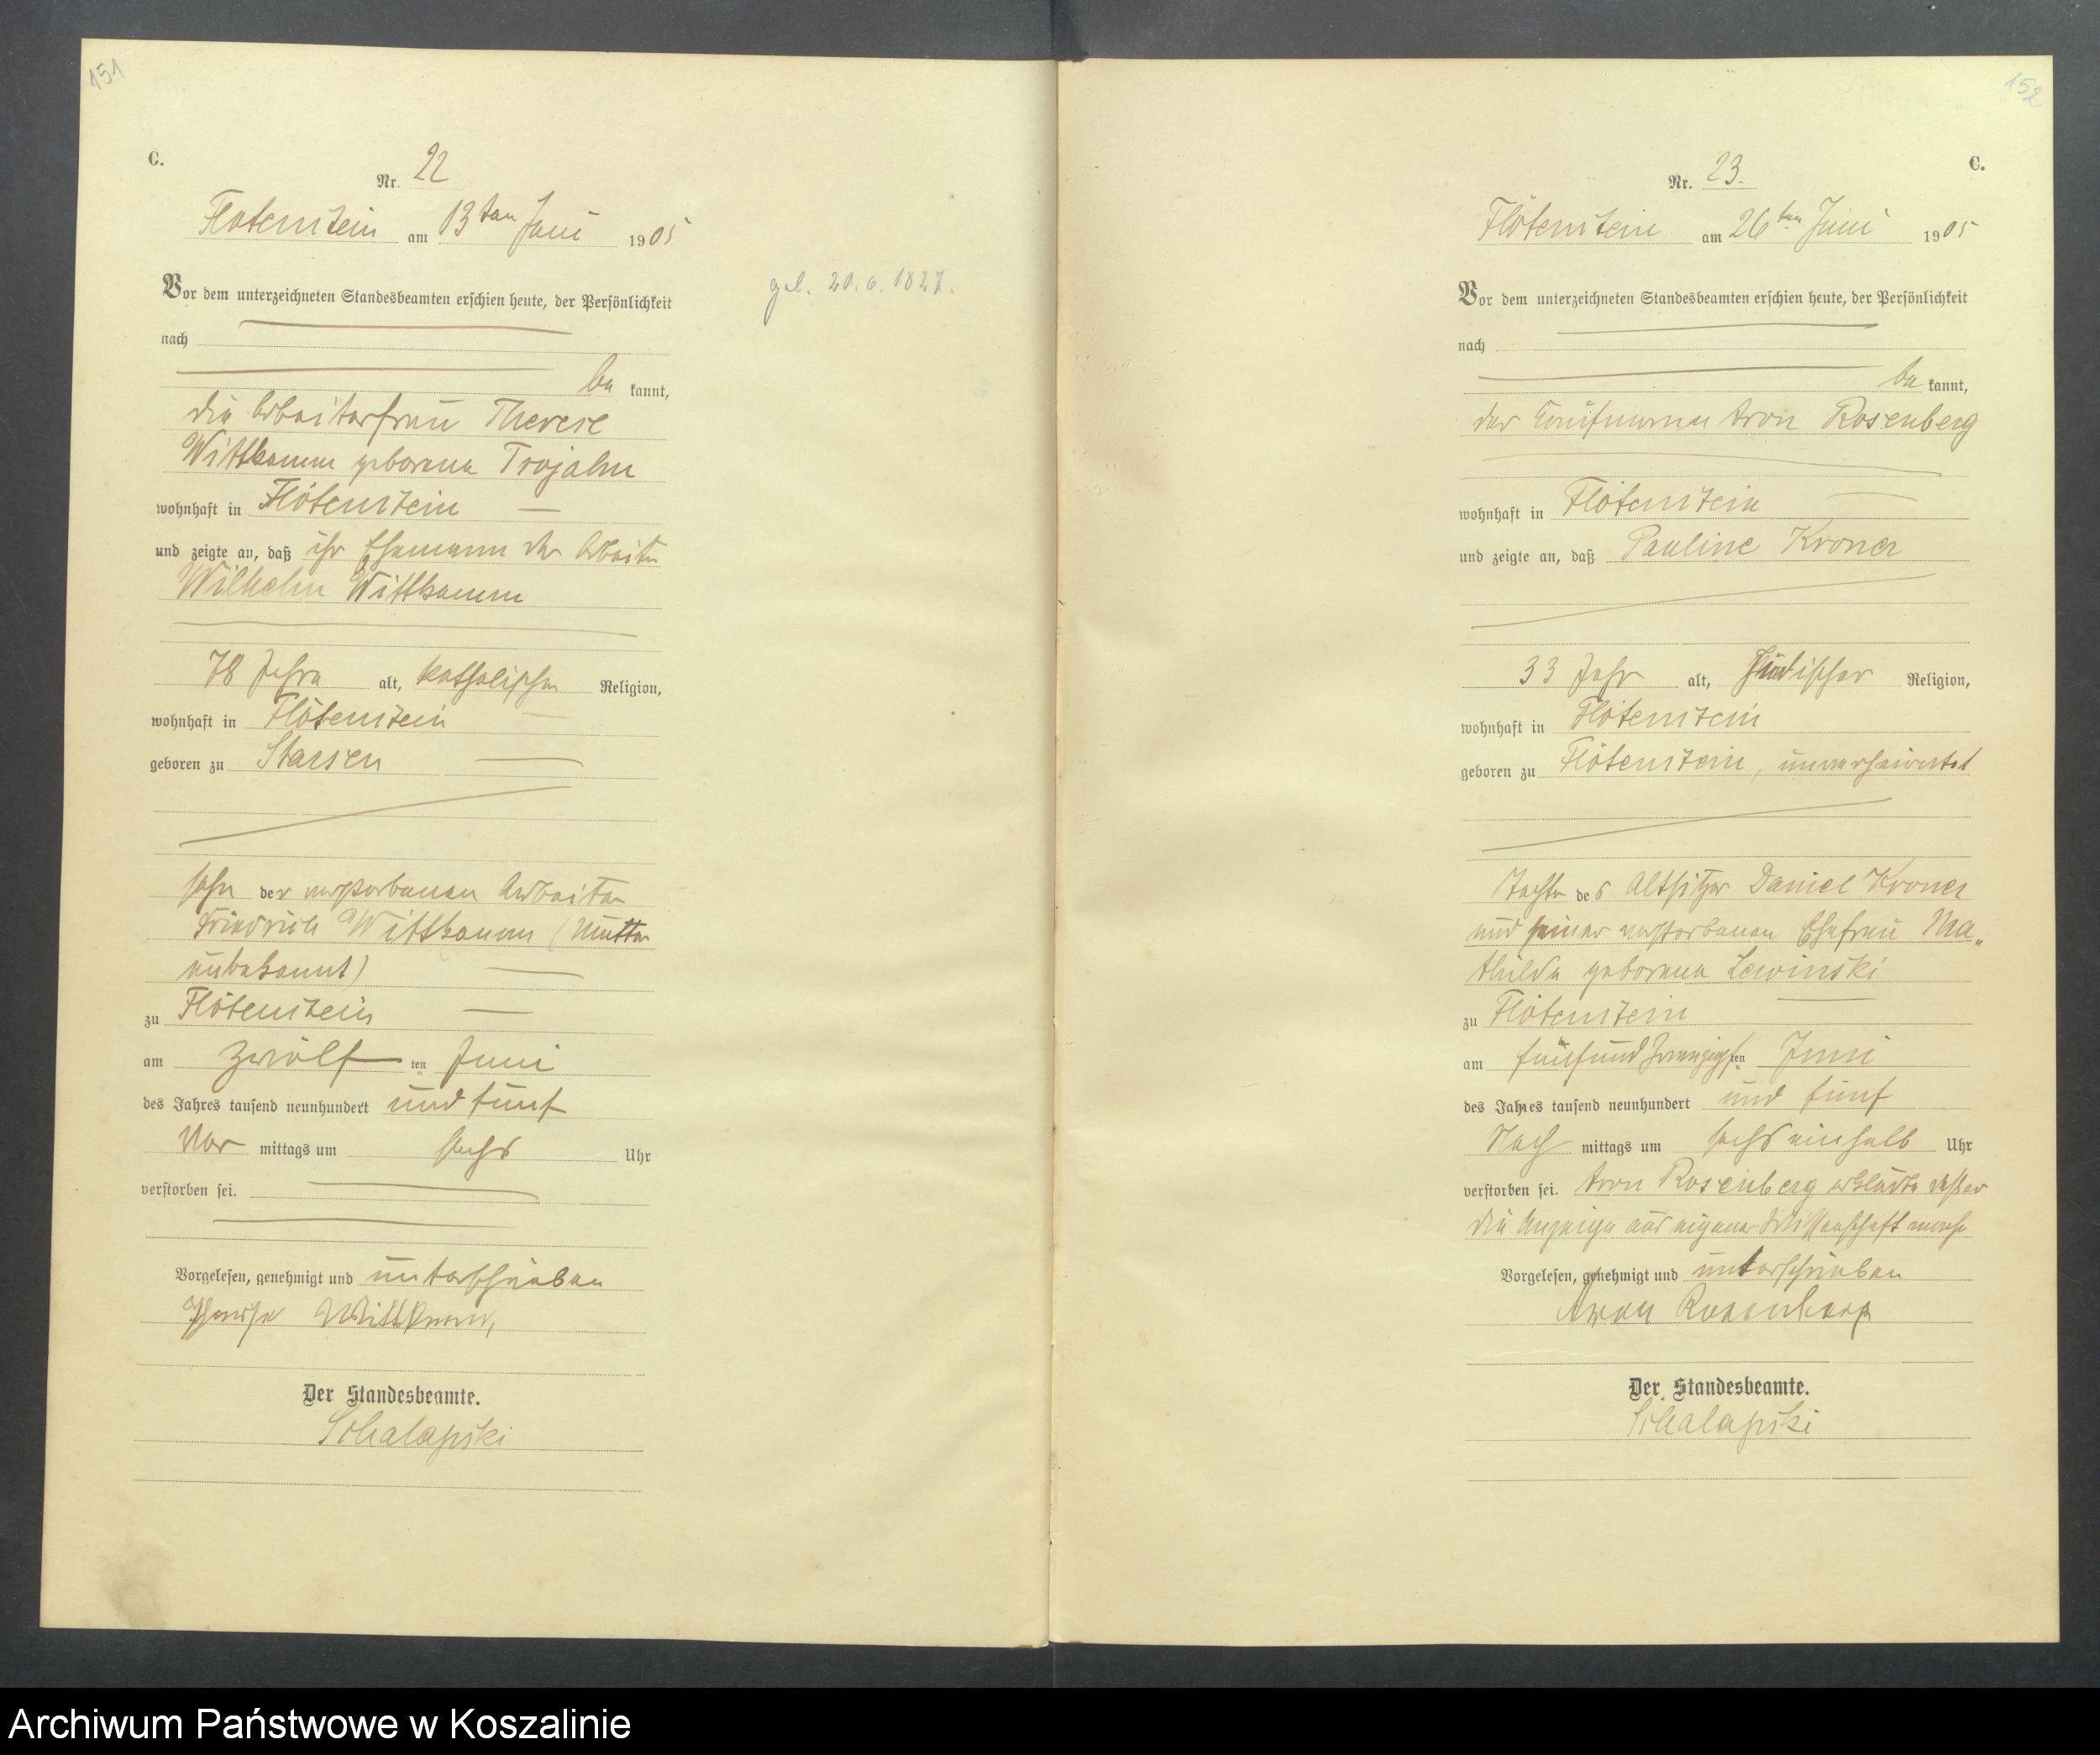 151
C.
Nr. 22
Flötenstein am 13ten Juni 1905
Vor dem unterzeichneten Standesbeamten erschien heute, der Persönlichkeit
geb. 20.6.1827.
nach
be kannt,
die Arbeiterfrau Therese
Wittkamm geborene Trojahn
wohnhaft in Flötenstein
und zeigte an, daß ihr Ehemann der Arbeiter
Wilhelm Wittkamm
78 Jahre alt, katholischer Religion,
wohnhaft in Flötenstein
geboren zu Starsen
Sohn der verstorbenen Arbeiter
Friedrich Wittkamm (Mutter
unbekannt)
zu Flötenstein
am zwölf ten Juni
des Jahres tausend neunhundert und fünf
Vor mittags um sechs Uhr
verstorben sei.
Vorgelesen, genehmigt und unterschrieben
Therese
Der Standesbeamte.
Schalapski
152
C.
Nr. 23.
Flötenstein am 26ten Juni 1905
Vor dem unterzeichneten Standesbeamten erschien heute, der Persönlichkeit
nach
be kannt,
der Kaufmann Aron Rosenberg
wohnhaft in Flötenstein
und zeigte an, daß Pauline Kroner
33 Jahr alt, Jüdischer Religion,
wohnhaft in Flötenstein
geboren zu Flötenstein, unverheiratet
Tochter des Altsitzer Daniel Kroner
und seiner verstorbenen Ehefrau Ma„
thilde geborene Lewinski
zu Flötenstein
am fünfundzwanzigsten Juni
des Jahres tausend neunhundert und fünf
Nach mittags um sechs einhalb Uhr
verstorben sei. Aron Rosenberg erklärte daß er
die Anzeige aus eigener Wissenschaft mache
Vorgelesen, genehmigt und unterschrieben
Aron Rosenberg
Der Standesbeamte.
Schalapski
Archiwum Państwowe w Koszalinie